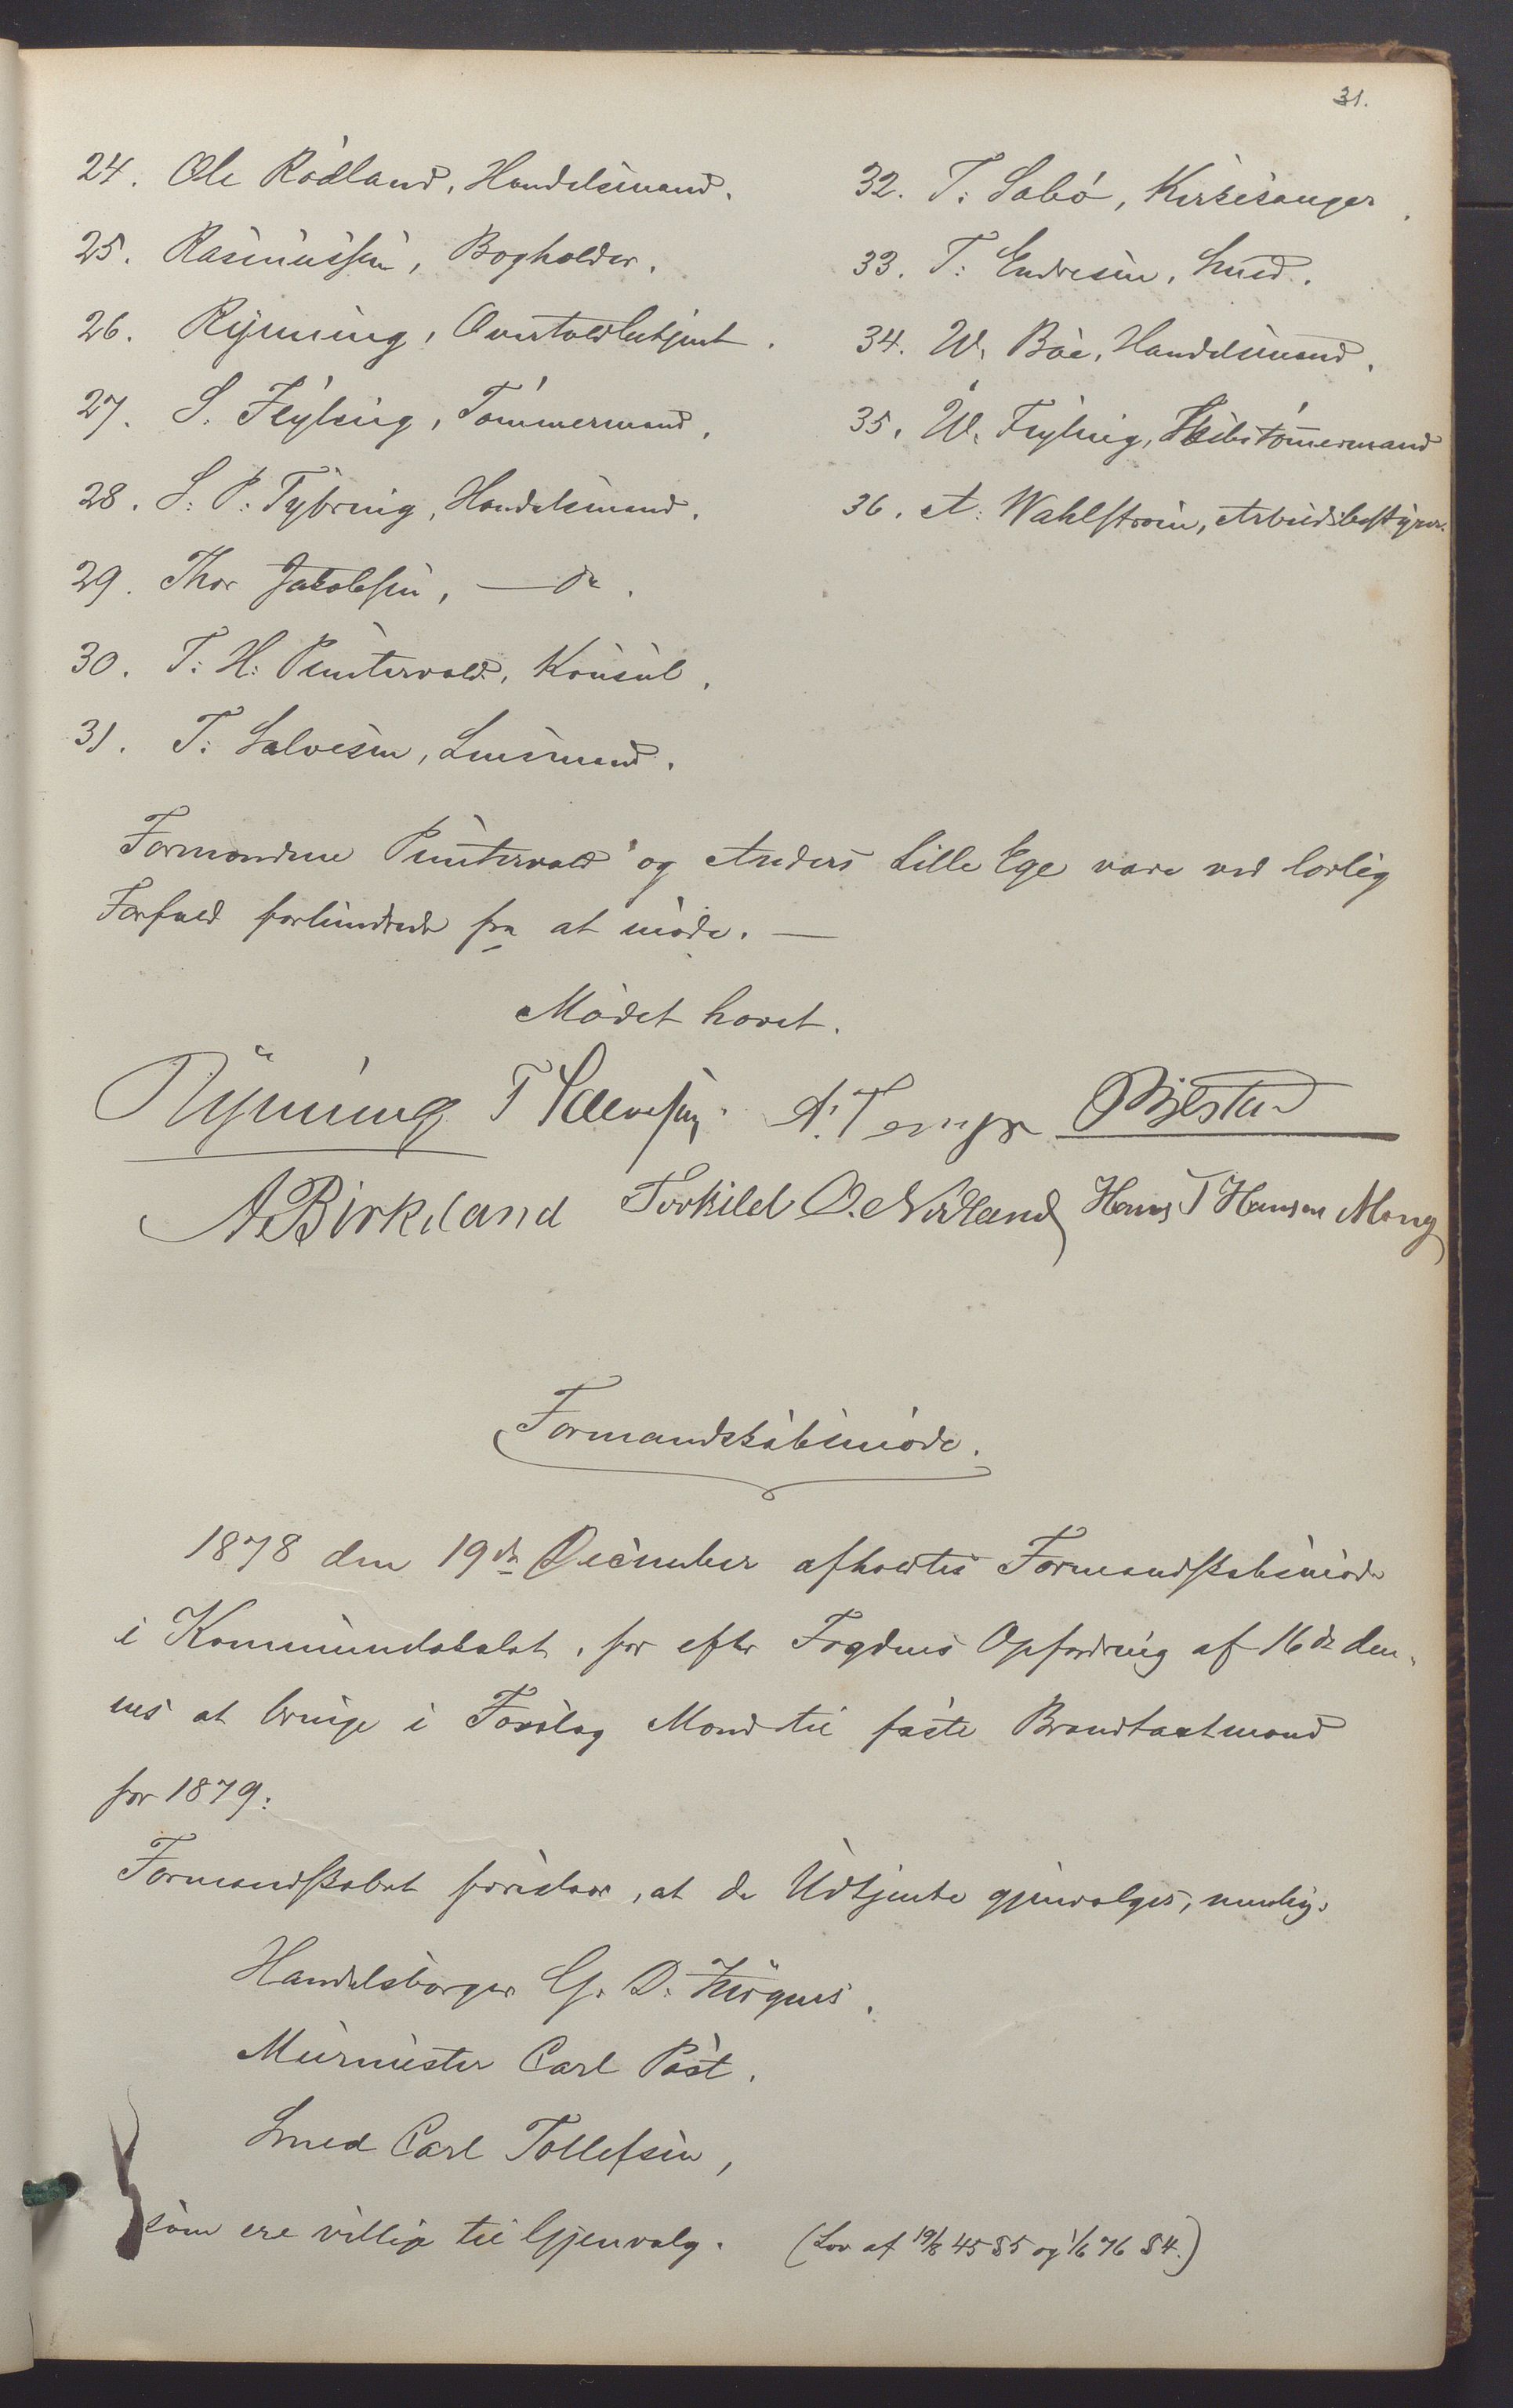 31.
24. Ole Rödland, Handelsmand.
25. Rasmussen, Bogholder.
26. Rynning, Overtoldbetjent.
27. S. Feyling, Tömmermand.
28. S. P. Tybring, Handelsmand.
29. Thor Jakobsen, — do.
30. T. H. Puntervold, Konsul.
31. T. Salvesen, Lensmand.
32. T. Sabö, Kirkesanger.
33. T. Endresen, Smed.
34. W. Böe, Handelsmand.
35. W. Feyling, Skibstömmermand
36. A. Wahlström, Arbeidsbestyrer.
Formændene Puntervold og Anders Lille Ege vare ved lovlig
Forfald forhindrede fra at möde. —
Mödet hævet.
Rynning T Salvesen. A. Tengs
A Birkeland Torkild O. Nodland Hans T Hansen Mong
Formandskabsmöde.
1878 den 19de December afholdtes Formandskabsmöde
i Kommunelokalet, for efter Fogdens Opfordring af 16de den-
nes at bringe i Forslag Mænd til faste Brandtaxtmænd
for 1879:
Formandskabet foreslaar, at de Udtjente gjenvælges, nemlig:
Handelsborger G. D.
Murmester Carl Post.
Smed Carl Tollefsen,
som ere villige til Gjenvalg. (Lov af 19/8 45 § 5 og 1/6 76 § 4.)